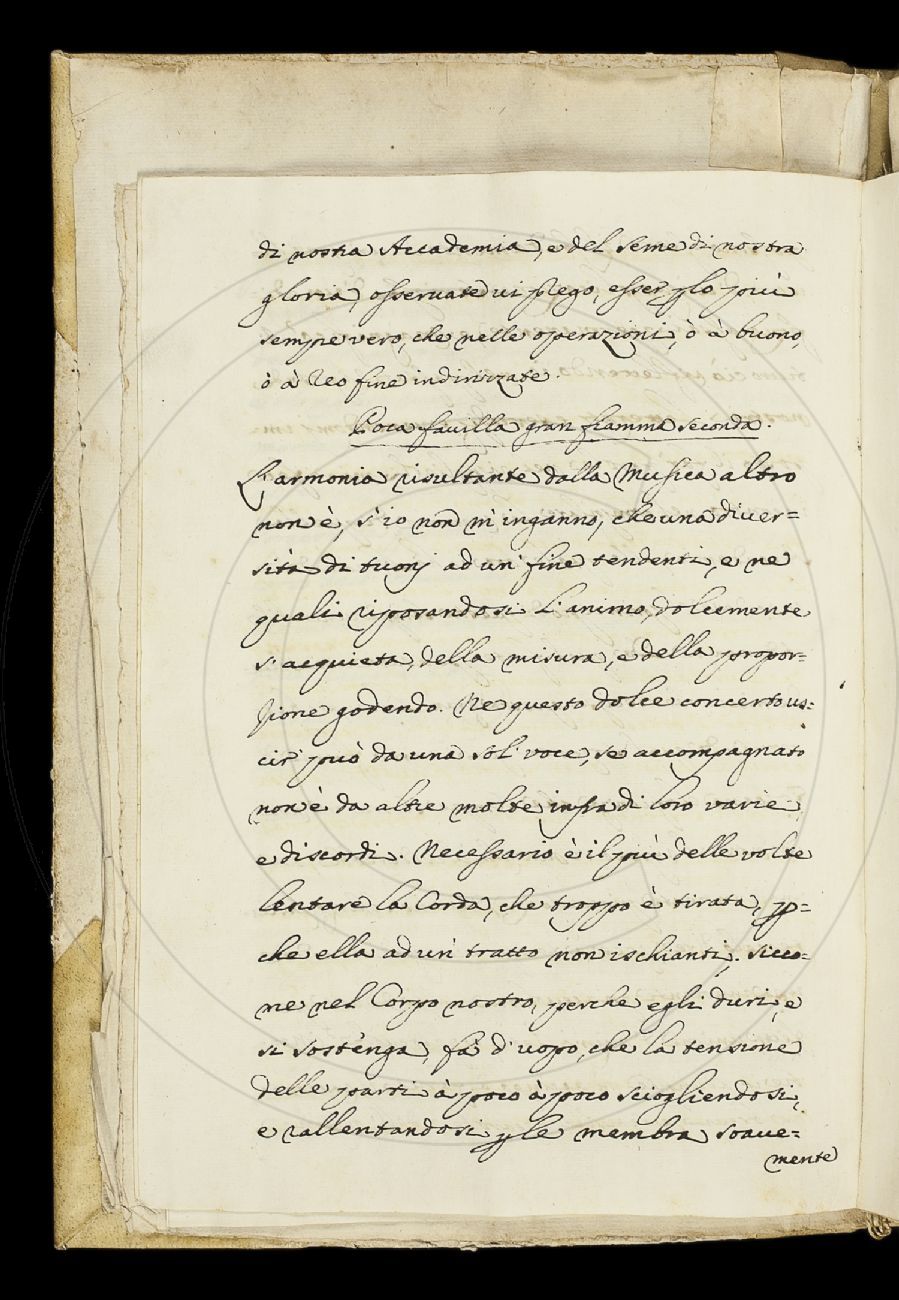 di nostra Accademia, e del seme di nostra
gloria, osservate vi prego, esser p lo più
sempre vero, che nelle operazioni, ò à buono,
ò à Reo fine indirizzate.
Poca favilla gran fiamma seconda.
L'armonia risultante dalla Musica altro
non è, s'io non m'inganno, che una diver=
sità di tuonj ad un' fine tendenti, e ne
quali riposandosi l'animo, dolcemente
s'acquieta, della misura, e della propor=
zione godendo. Ne questo dolce concerto us=
cir' può da una sol' voce, se accompagnato
non è da altre molte infra di loro varie,
e discordi. Necessario è il più delle volte
lentare la Corda, che troppo è tirata, p=
che ella ad un' tratto non ischianti; sicco=
me nel Corpo nostro, perche egli duri, e
si sostènga, fà d'uopo, che la tensione
delle parti à poco à poco sciogliendosi,
e rallentandosi p le membra soave=
mente